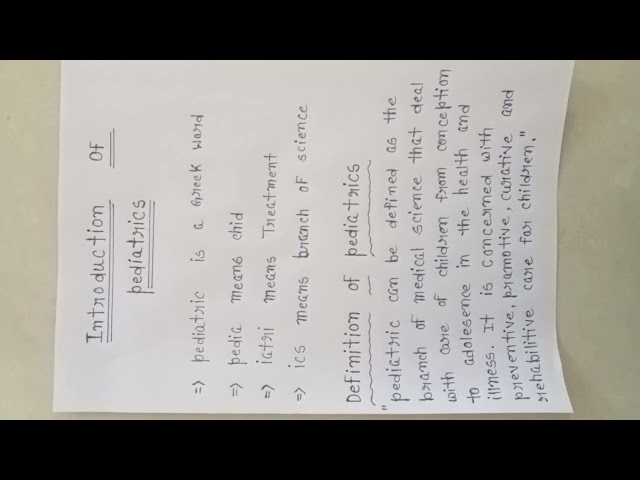 Introduction of
pediatrics
=> pediatric is a Greek word
=> pedia means chid
=> iatri means Treatment
=> ics means branch of science
Definition of pediatrics
"pediatric can be defined as the
branch of medical science that deal
with care of children from conception
to adolesence in the health and
illness. It is concerned with
preventive, pramotive, curative and
rehabilitive care for children."